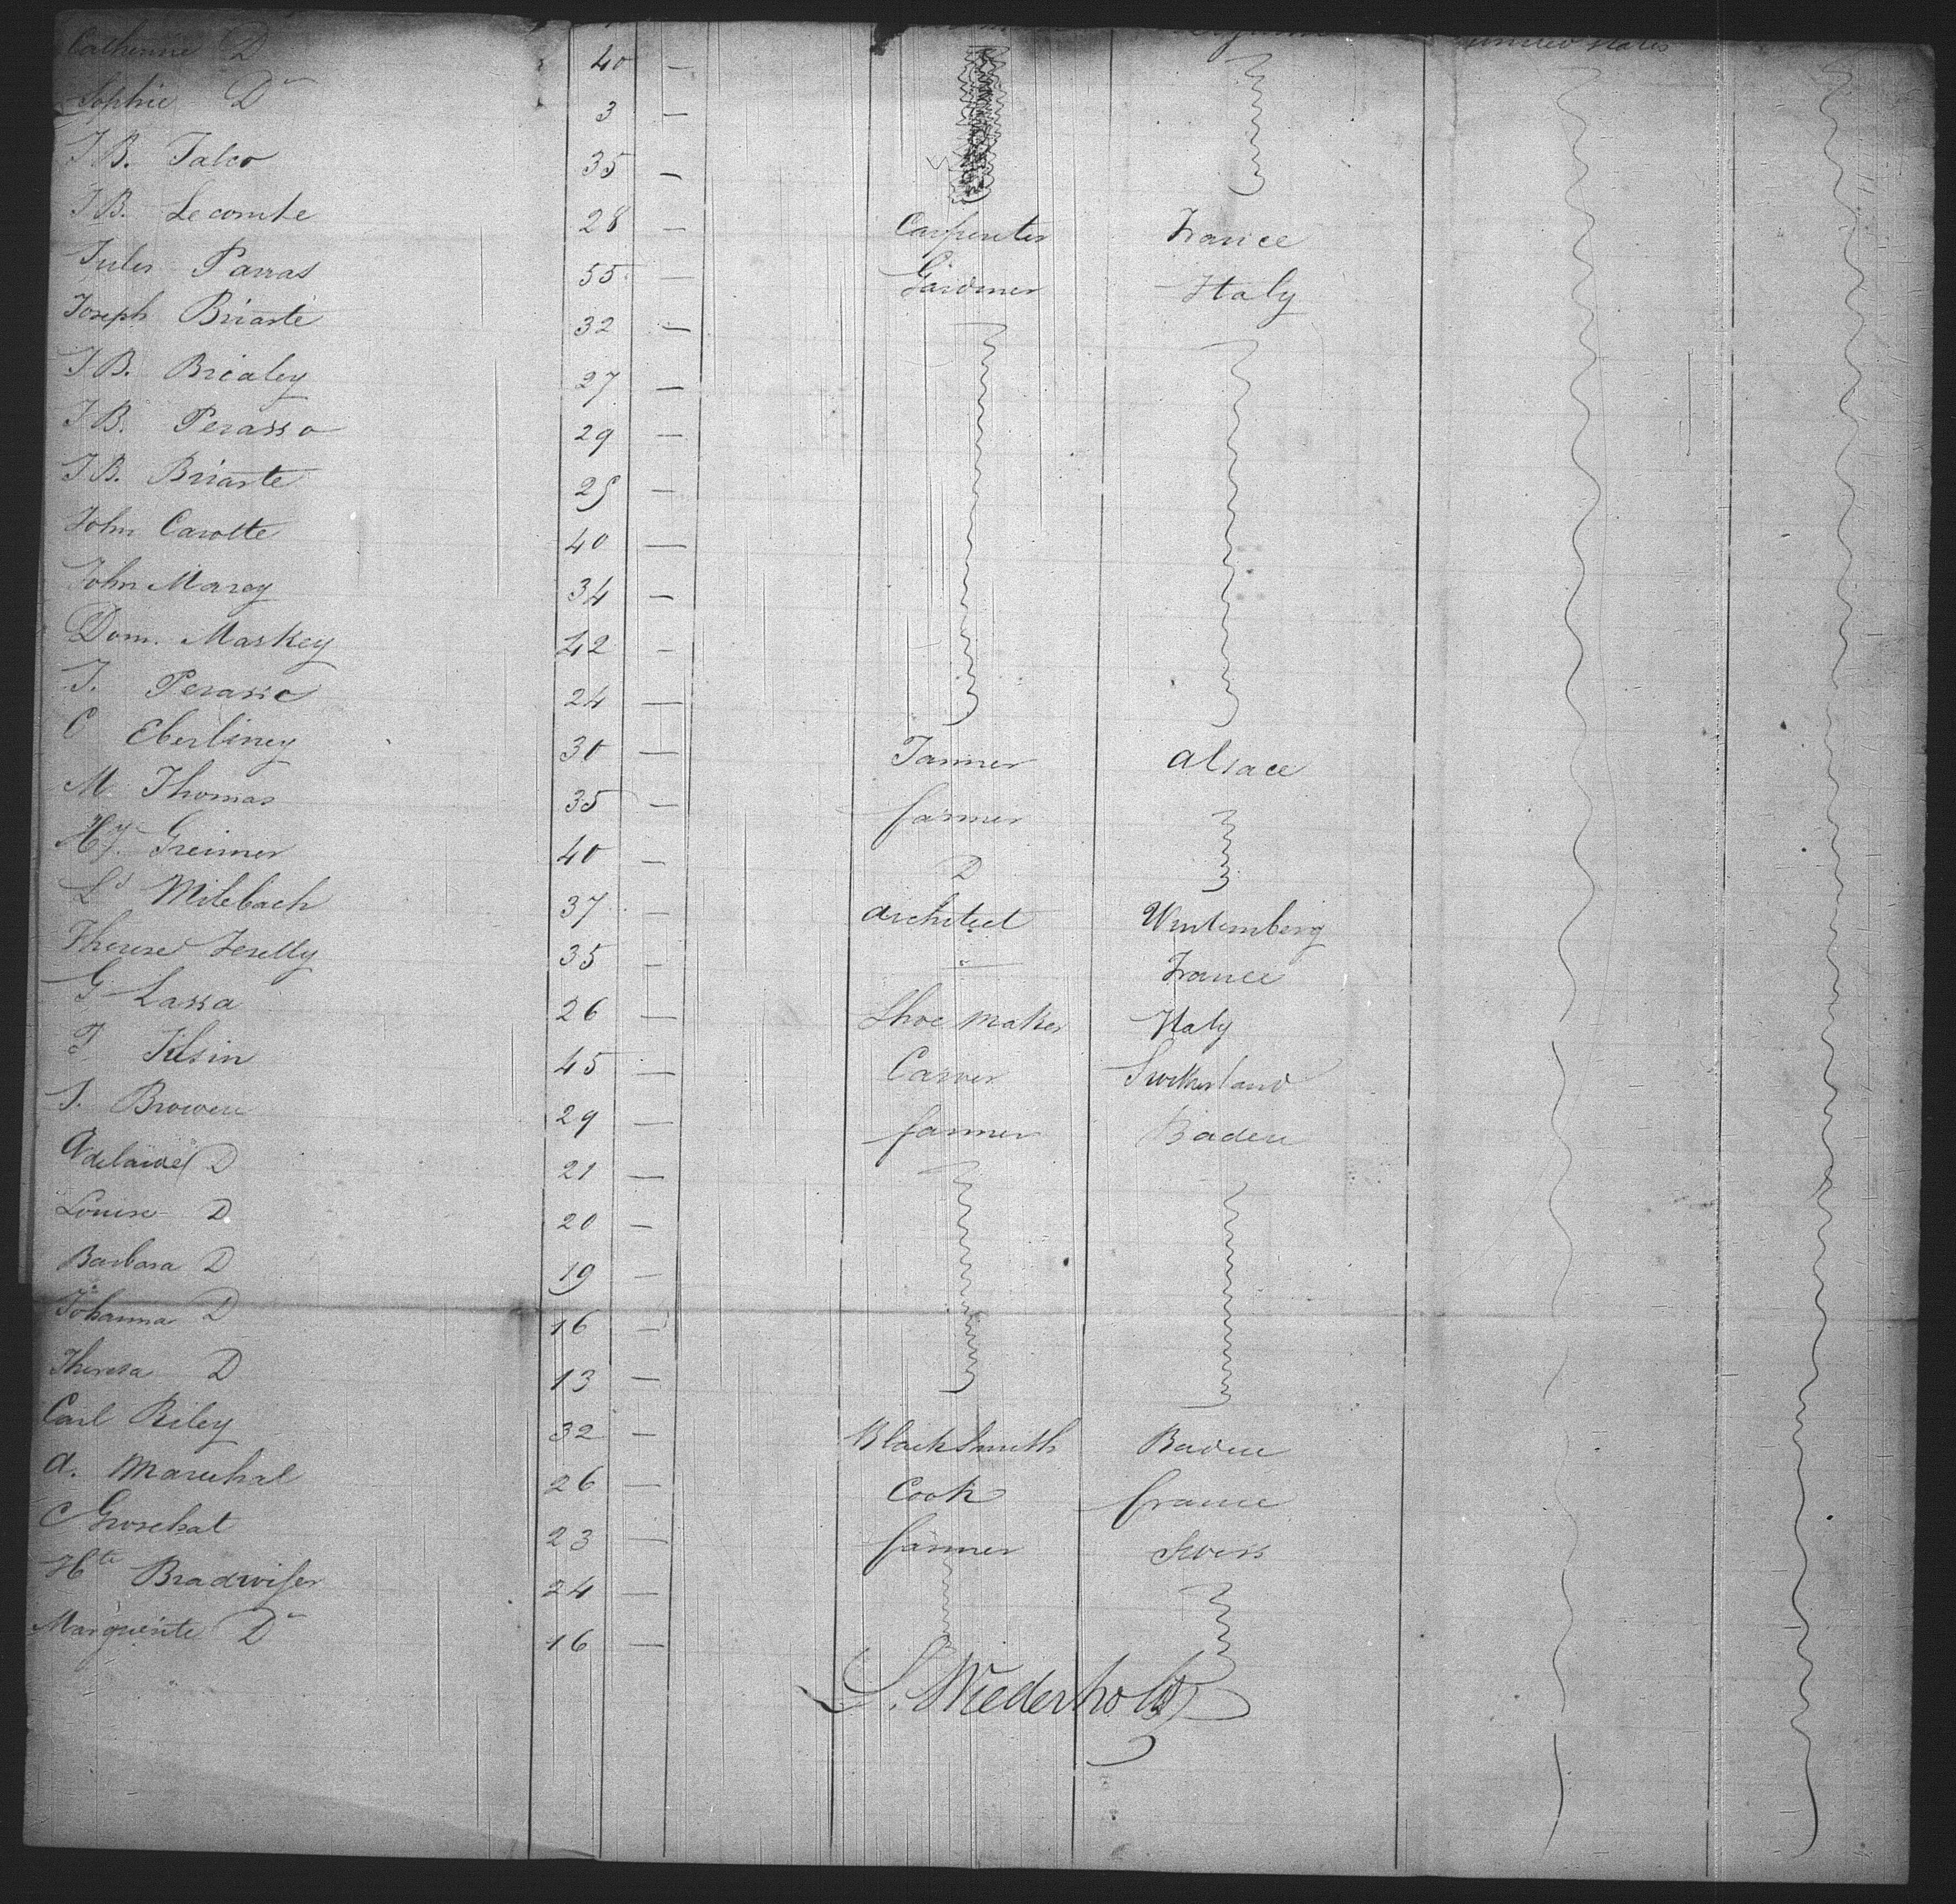 Catherine D 40 —
Sophie Do 3 — United States
J B. Talco 35 —
J B. Lecomte 28 — Carpenter France
Jules Parras 55 — Gardiner Italy
Joseph Briaste 32 —
J B. Brealey 27 —
J B. Perasso 29 —
J B. Briaste 25 —
John Carotte 40 —
John Marey 34 —
Dom. Maskey 42 —
J. Perasso 24 —
C Eberliney 30 — Tanner Alsace
M Thomas 35 — farmer
Hy. Greimer 40 — D
Ls Milebach 37 — architect Wurtemberg
Therese Ferelly 35 — France
G Lassa 26 — Shoe maker Italy
45 — Carver Switzerland
J. Browen 29 — farmer Baden
Adelaide D 21 —
Louise D 20 —
Barbara D 19 —
Johanna D 16 —
Theresa D 13 —
Carl Riley 32 — Blacksmith Baden
A. Marechal 26 — Cook france
C Groschat 23 — farmer Swiss
Hte Bradwiser 24 —
Marguerite Do 16 —
S. Wiederholdt